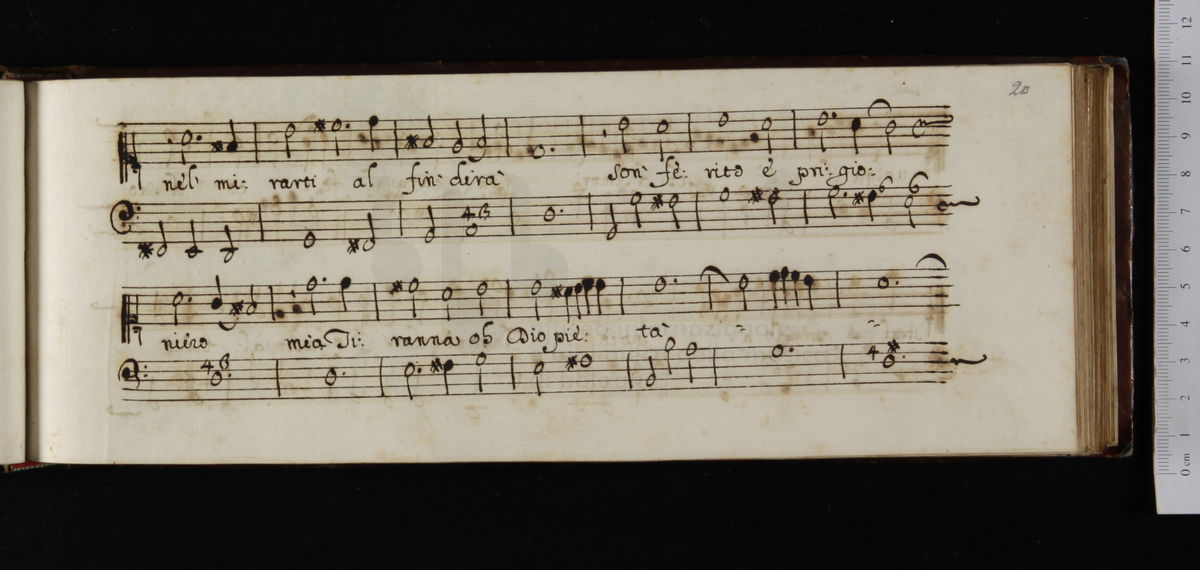 20
nel mi: rarti al fin dira son fe: rito è pri: gio:
4 6 6 6
niero mia Ti: ranna oh Dio pie: tà
4 6 4
12
11
10
9
8
7
6
5
4
3
2
1
0 cm